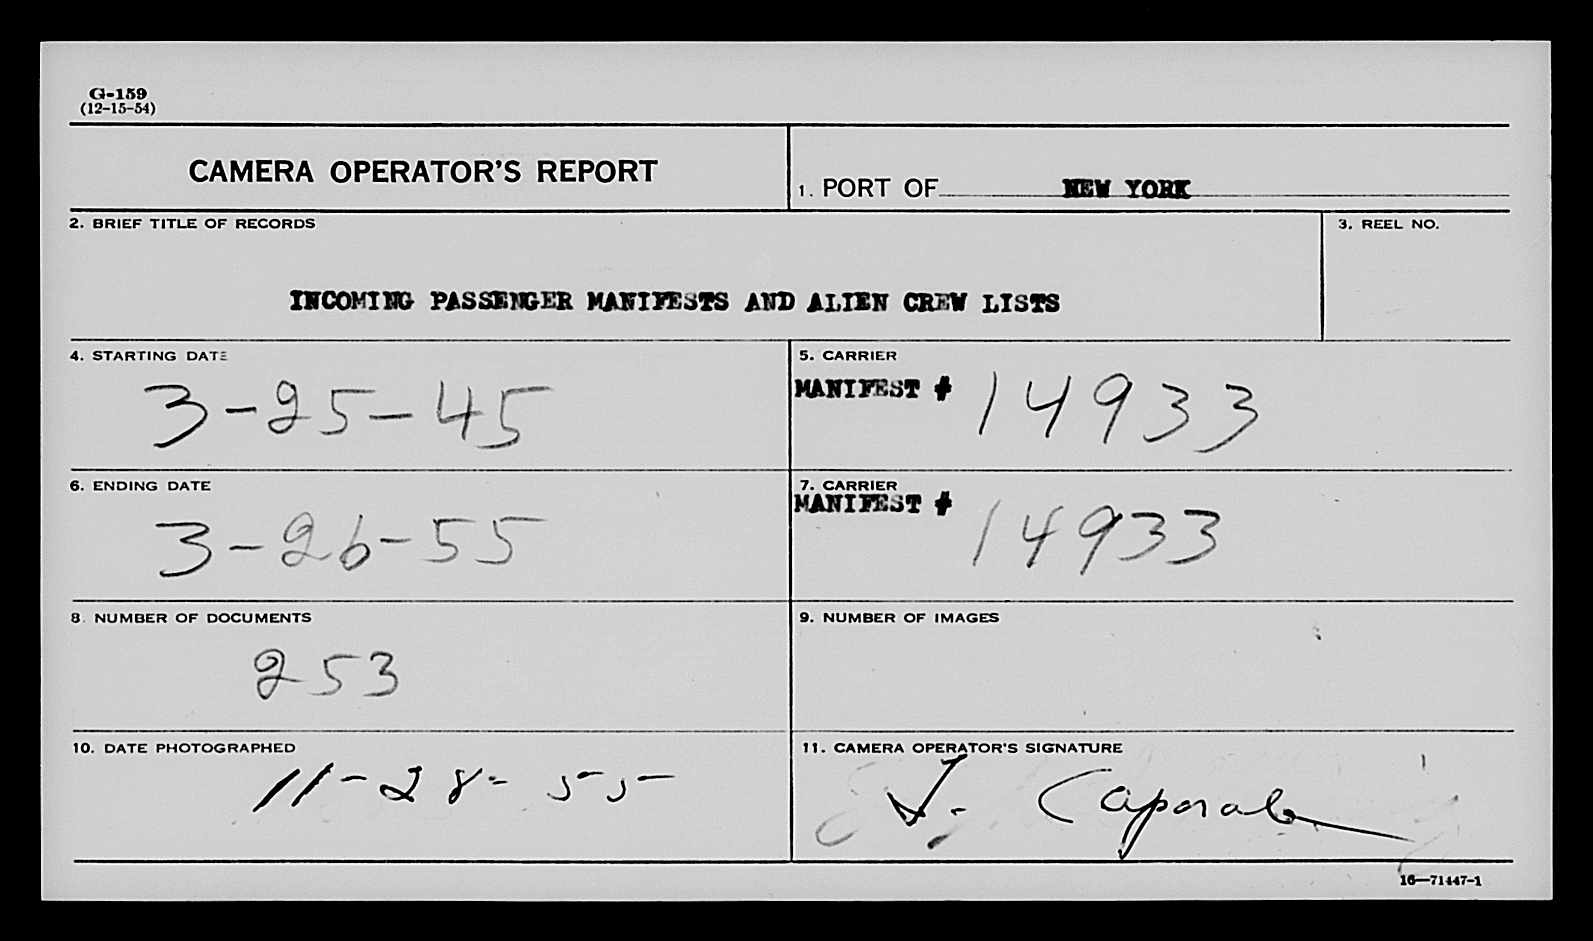 G-159
(12-15-54)
CAMERA OPERATOR'S REPORT
1. PORT OF NEW YORK
2. BRIEF TITLE OF RECORDS
3. REEL NO.
INCOMING PASSENGER MANIFESTS AND ALIEN CREW LISTS
4. STARTING DATE
3-25-45
5. CARRIER
MANIFEST # 14933
6. ENDING DATE
3-26-55
7. CARRIER
MANIFEST # 14933
8. NUMBER OF DOCUMENTS
253
9. NUMBER OF IMAGES
10. DATE PHOTOGRAPHED
11-28-55
11. CAMERA OPERATOR'S SIGNATURE
J. Caporale
16—71447-1